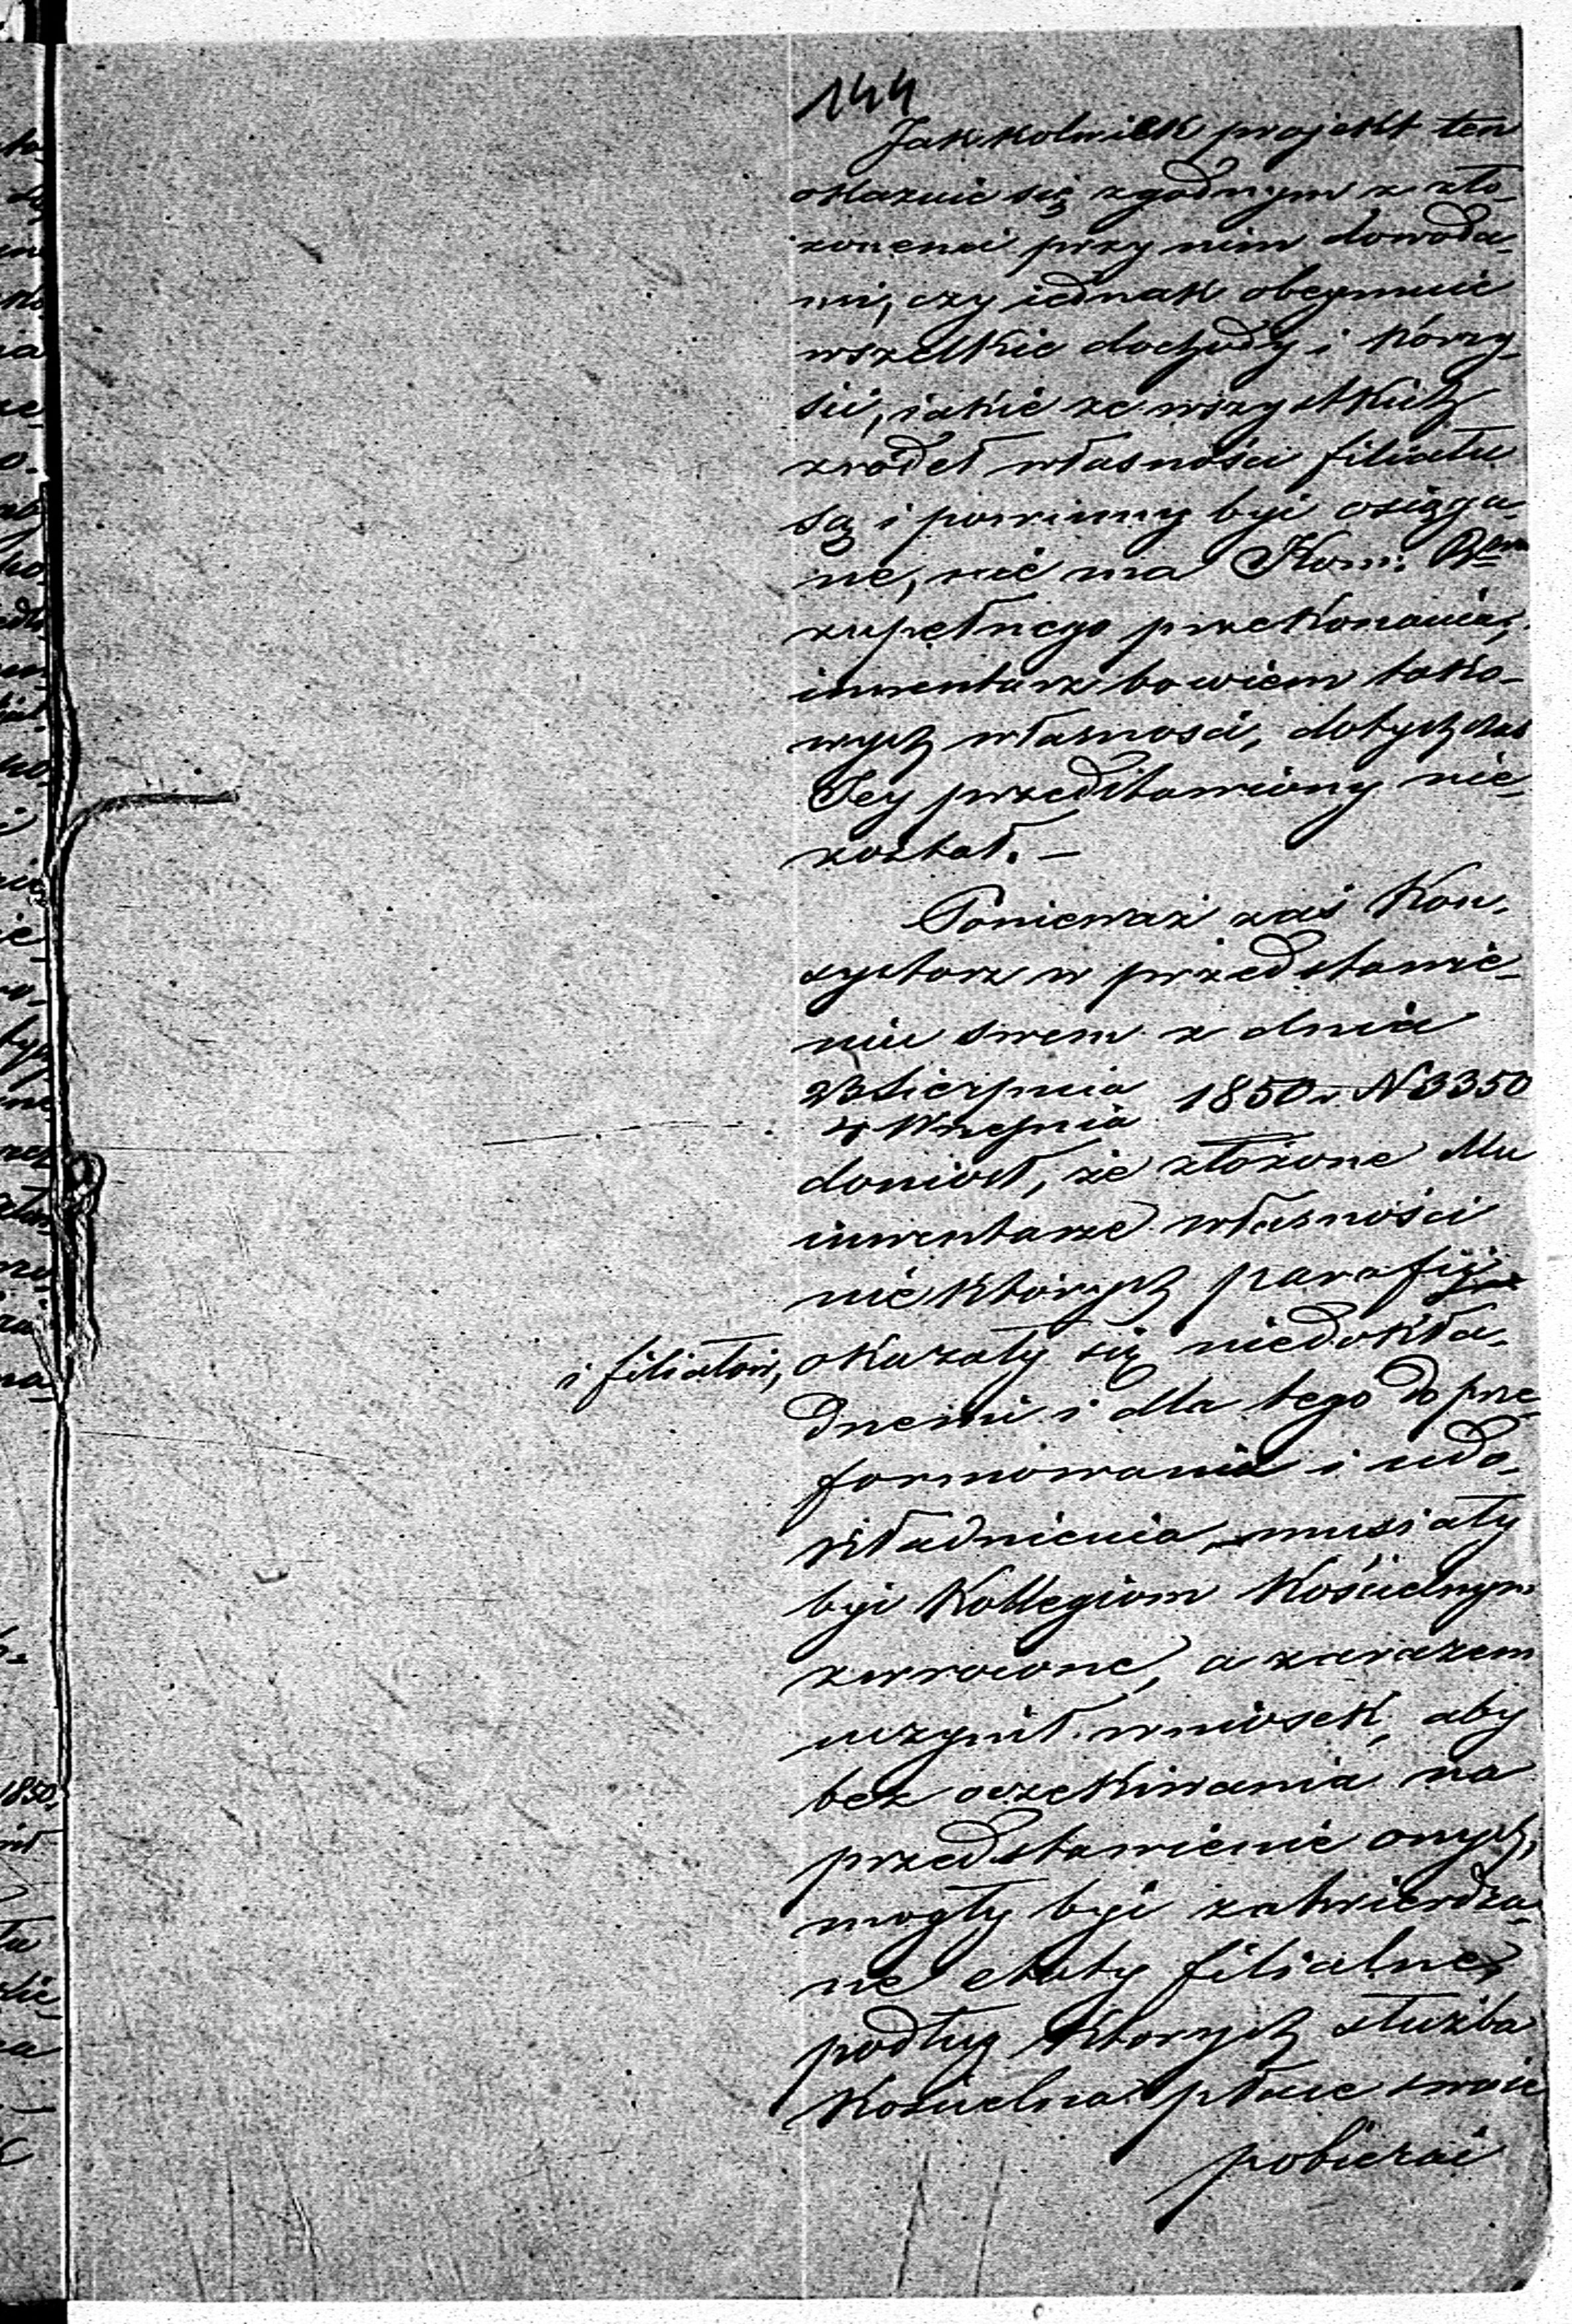 144
Jakkolwiek projekt ten
okazuie się zgodnym z zło-
żonemi przy nim dowoda-
mi, czy iednak obeymuie
wszelkie dochody i kórzy-
ści, iakie ze wszystkich
zrodeł własności filiału
są i powinny być osiąga-
ne, nié ma Kom: Rwa
zupełnego przekonania,
inwentarz bowiem tako-
wych własności, dotychczas
Jey przedstawiony nie-
został. —
Ponieważ zaś Kon-
systorz w przedstawie-
niu swem z dnia
23 Sierpnia
4 Września 1850 r. N 3350
doniosł, że złożone Mu
inwentarze własności
niektórych parafij
i filiałów, okazały się niedokła-
dnemi i dla tego do prze-
formowania i udo-
kładnienia musiały
być Kollegiom Kościelnym
zwrócone, a zarazem
uczynił wniosek, aby
bez oczekiwania na
przedstawienie onych,
mogły być zatwierdza-
ne etaty filialne,
podług których służba
Kościelna płace swoie
pobierać